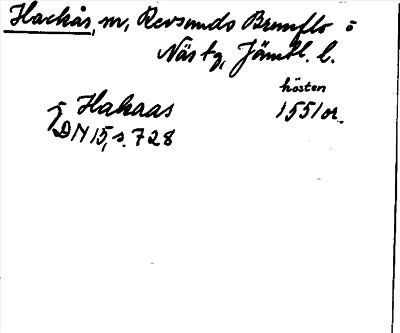 Hackås, m, Revsunds Brunflo o
Näs tg, Jämtl. l.
hösten
j Hakaas 1551 or.
DN 15, s. 728